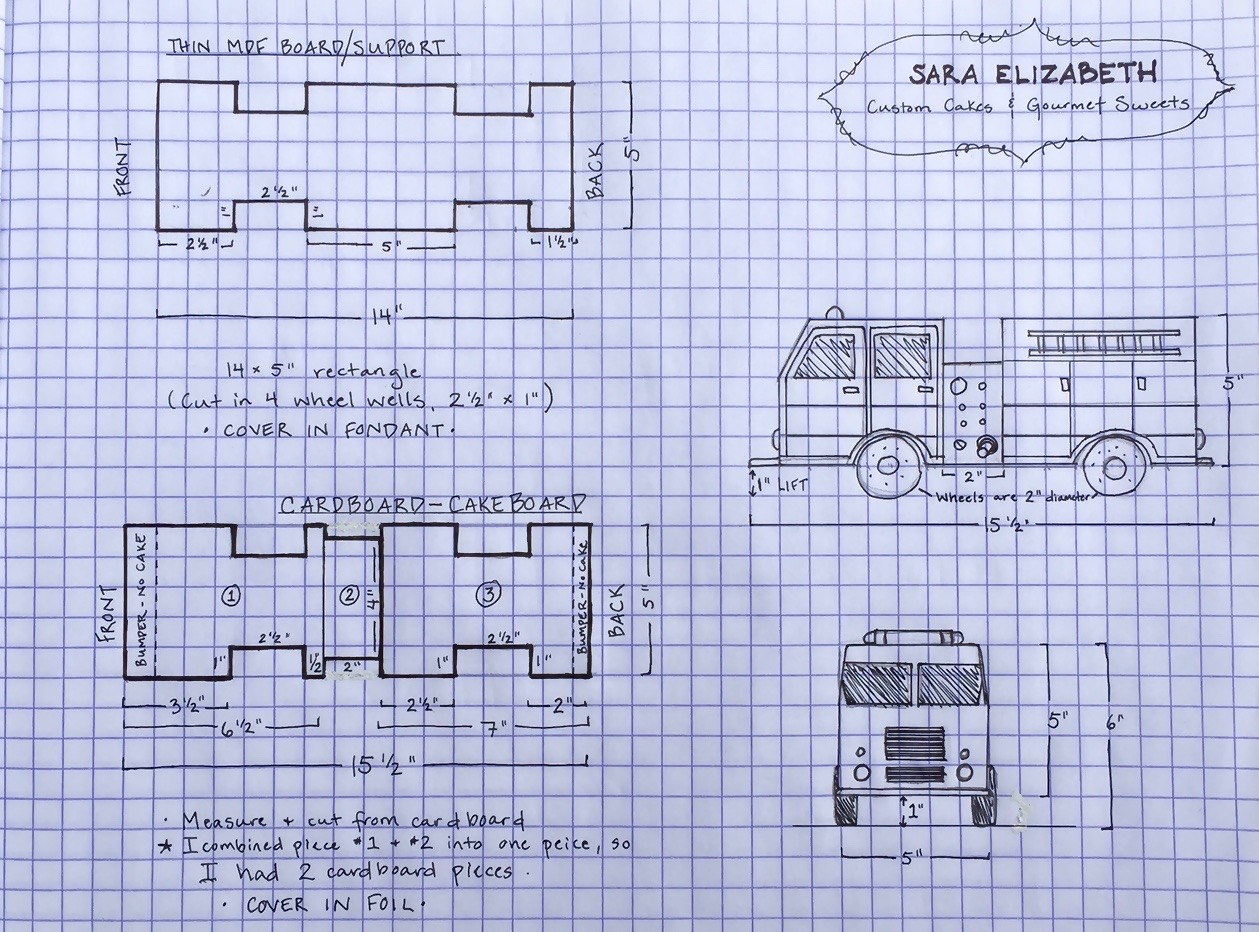 THIN MDF BOARD/SUPPORT
FRONT
2½"
1"
1"
2½"
5"
1½"
BACK
5"
14"
14 × 5" rectangle
(Cut in 4 wheel wells, 2½" × 1")
· COVER IN FONDANT ·
CARDBOARD - CAKEBOARD
FRONT
BUMPER - NO CAKE
①
2½"
1"
½
②
4"
2"
③
2½"
1"
1"
BUMPER - NO CAKE
BACK
5"
3½"
2½"
2"
6½"
7"
15½"
· Measure + cut from cardboard
* I combined piece #1 + #2 into one peice, so
I had 2 cardboard pieces.
· COVER IN FOIL ·
SARA ELIZABETH
Custom Cakes & Gourmet Sweets
5"
1" LIFT
2"
Wheels are 2" diameter
15½"
5"
6"
1"
5"